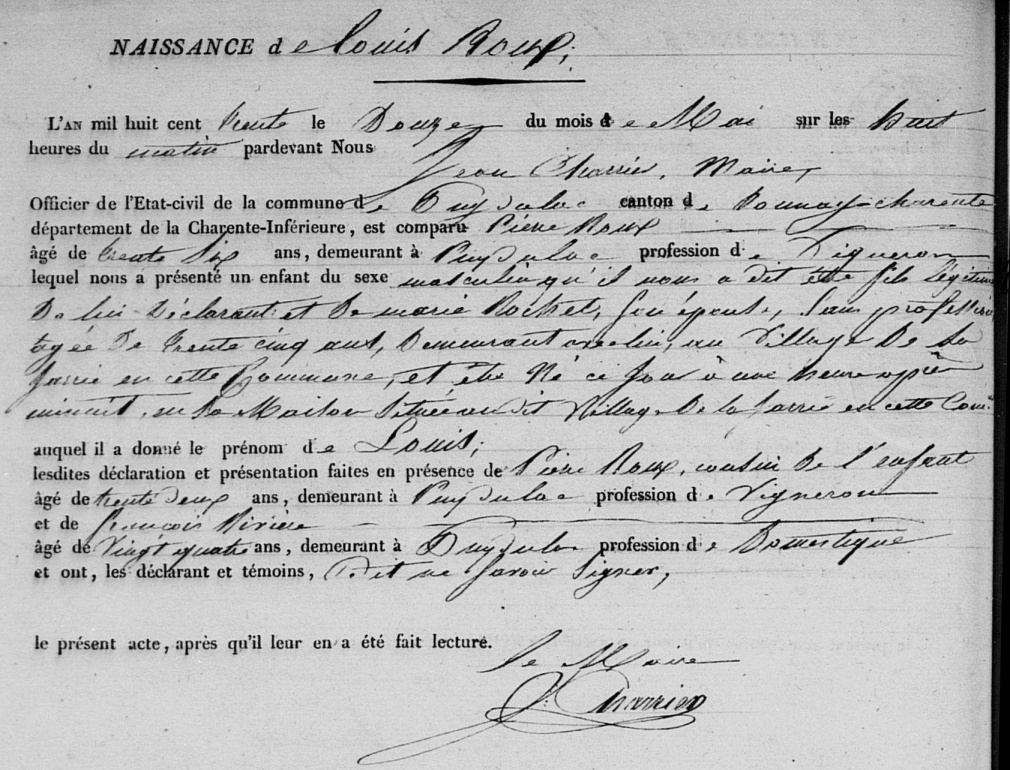 NAISSANCE de Louis Roux;
L'AN mil huit cent trente le Douze du mois de Mai sur les huit
heures du matin pardevant Nous
Jean Charrier, Maire,
Officier de l'Etat-civil de la commune de Puydulac canton de Tonnay-charente
département de la Charente-Inférieure, est comparu Pierre Roux
âgé de trente Six ans, demeurant à Puydulac profession de Vigneron
lequel nous a présenté un enfant du sexe masculin qu'il nous a dit être fils légitime
De lui Déclarant et De marie Rochet, Son épouse, Sans profession
agée De trente cinq ans, Demeurant avec lui, au Village De La
Jarrie en cette Commune, et être Né ce Jour à une heure après
minuit, en Sa Maison Située au dit Village De la Jarrie en cette Comne
auquel il a donné le prénom de Louis;
lesdites déclaration et présentation faites en présence de Pierre Roux, cousin De l'enfant
âgé de trente deux ans, demeurant à Puydulac profession de Vigneron
et de François Rivière
âgé de Vingt quatre ans, demeurant à Puydulac profession de Domestique
et ont, les déclarant et témoins, Dit ne Savoir Signer,
le présent acte, après qu'il leur en a été fait lecture.
le Maire
J. Charrier